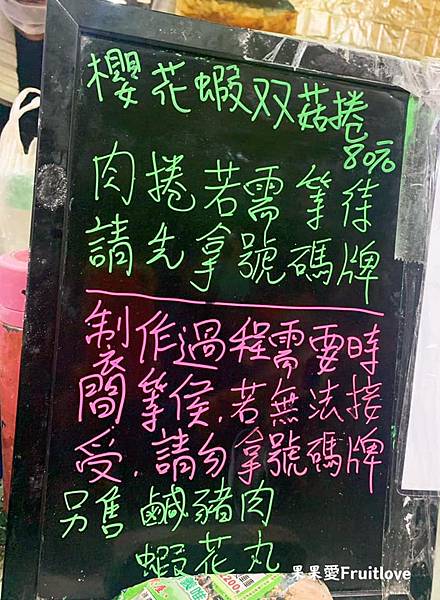 櫻花蝦双菇捲
80元
肉捲若需等待
請先拿號碼牌
製作過程需要時
間等侯,若無法接
受,請勿拿號碼牌
另售鹹豬肉
蝦花丸
果果愛Fruitlove